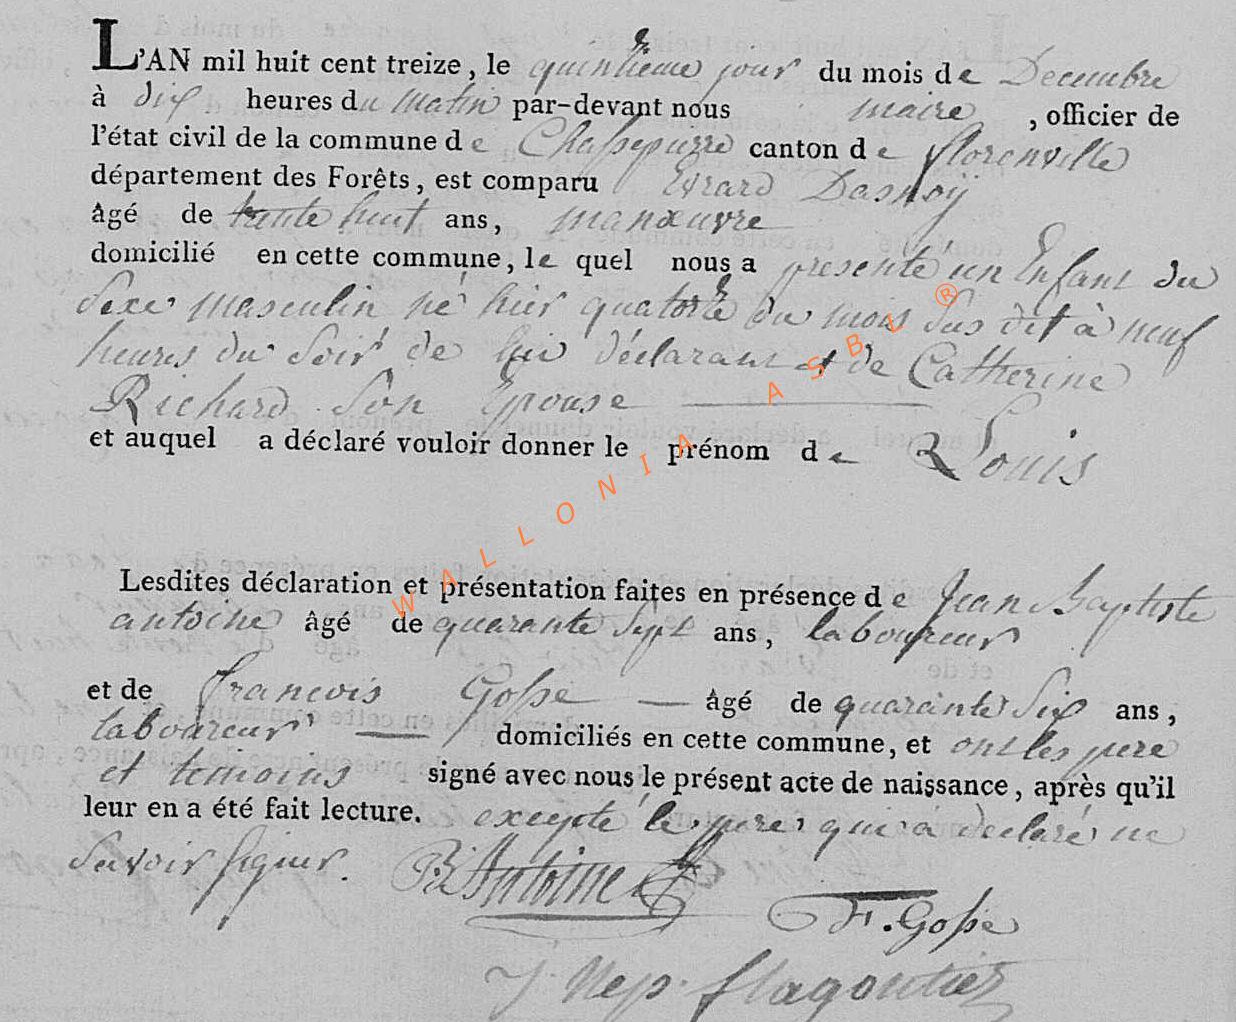 L'AN mil huit cent treize, le quinzieme jour du mois de Decembre
à dix heures du Matin par-devant nous maire, officier de
l'état civil de la commune de Chassepierre canton de florenville
département des Forêts, est comparu Evrard Dasnoÿ
âgé de trente huit ans, manœuvre
domicilié en cette commune, le quel nous a presenté un Enfant du
Sexe masculin né hier quatorze du mois Sus dit à neuf
heures du Soir de lui déclarant et de Catherine
Richard Son Epouse
et auquel a déclaré vouloir donner le prénom de Louis
WALLONIA ASBL ®
Lesdites déclaration et présentation faites en présence de Jean Baptiste
antoine âgé de quarante Sept ans, laboureur
et de francois Gosse âgé de quarante Six ans,
laboureur domiciliés en cette commune, et ont les pere
et temoins signé avec nous le présent acte de naissance, après qu'il
leur en a été fait lecture. excepté le pere qui a declaré ne
Savoir signer. Antoine
F. Gosse
J. Nep. flagontier